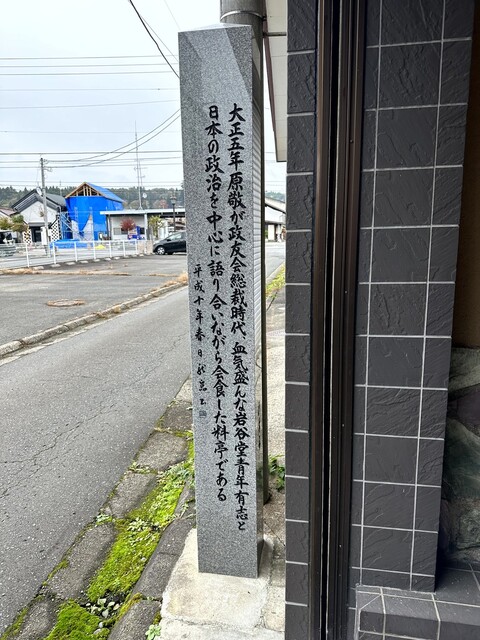 大正五年原敬が政友会総裁時代 血気盛んな岩谷堂青年有志と
日本の政治を中心に語り合いながら会食した料亭である
平成十年春日